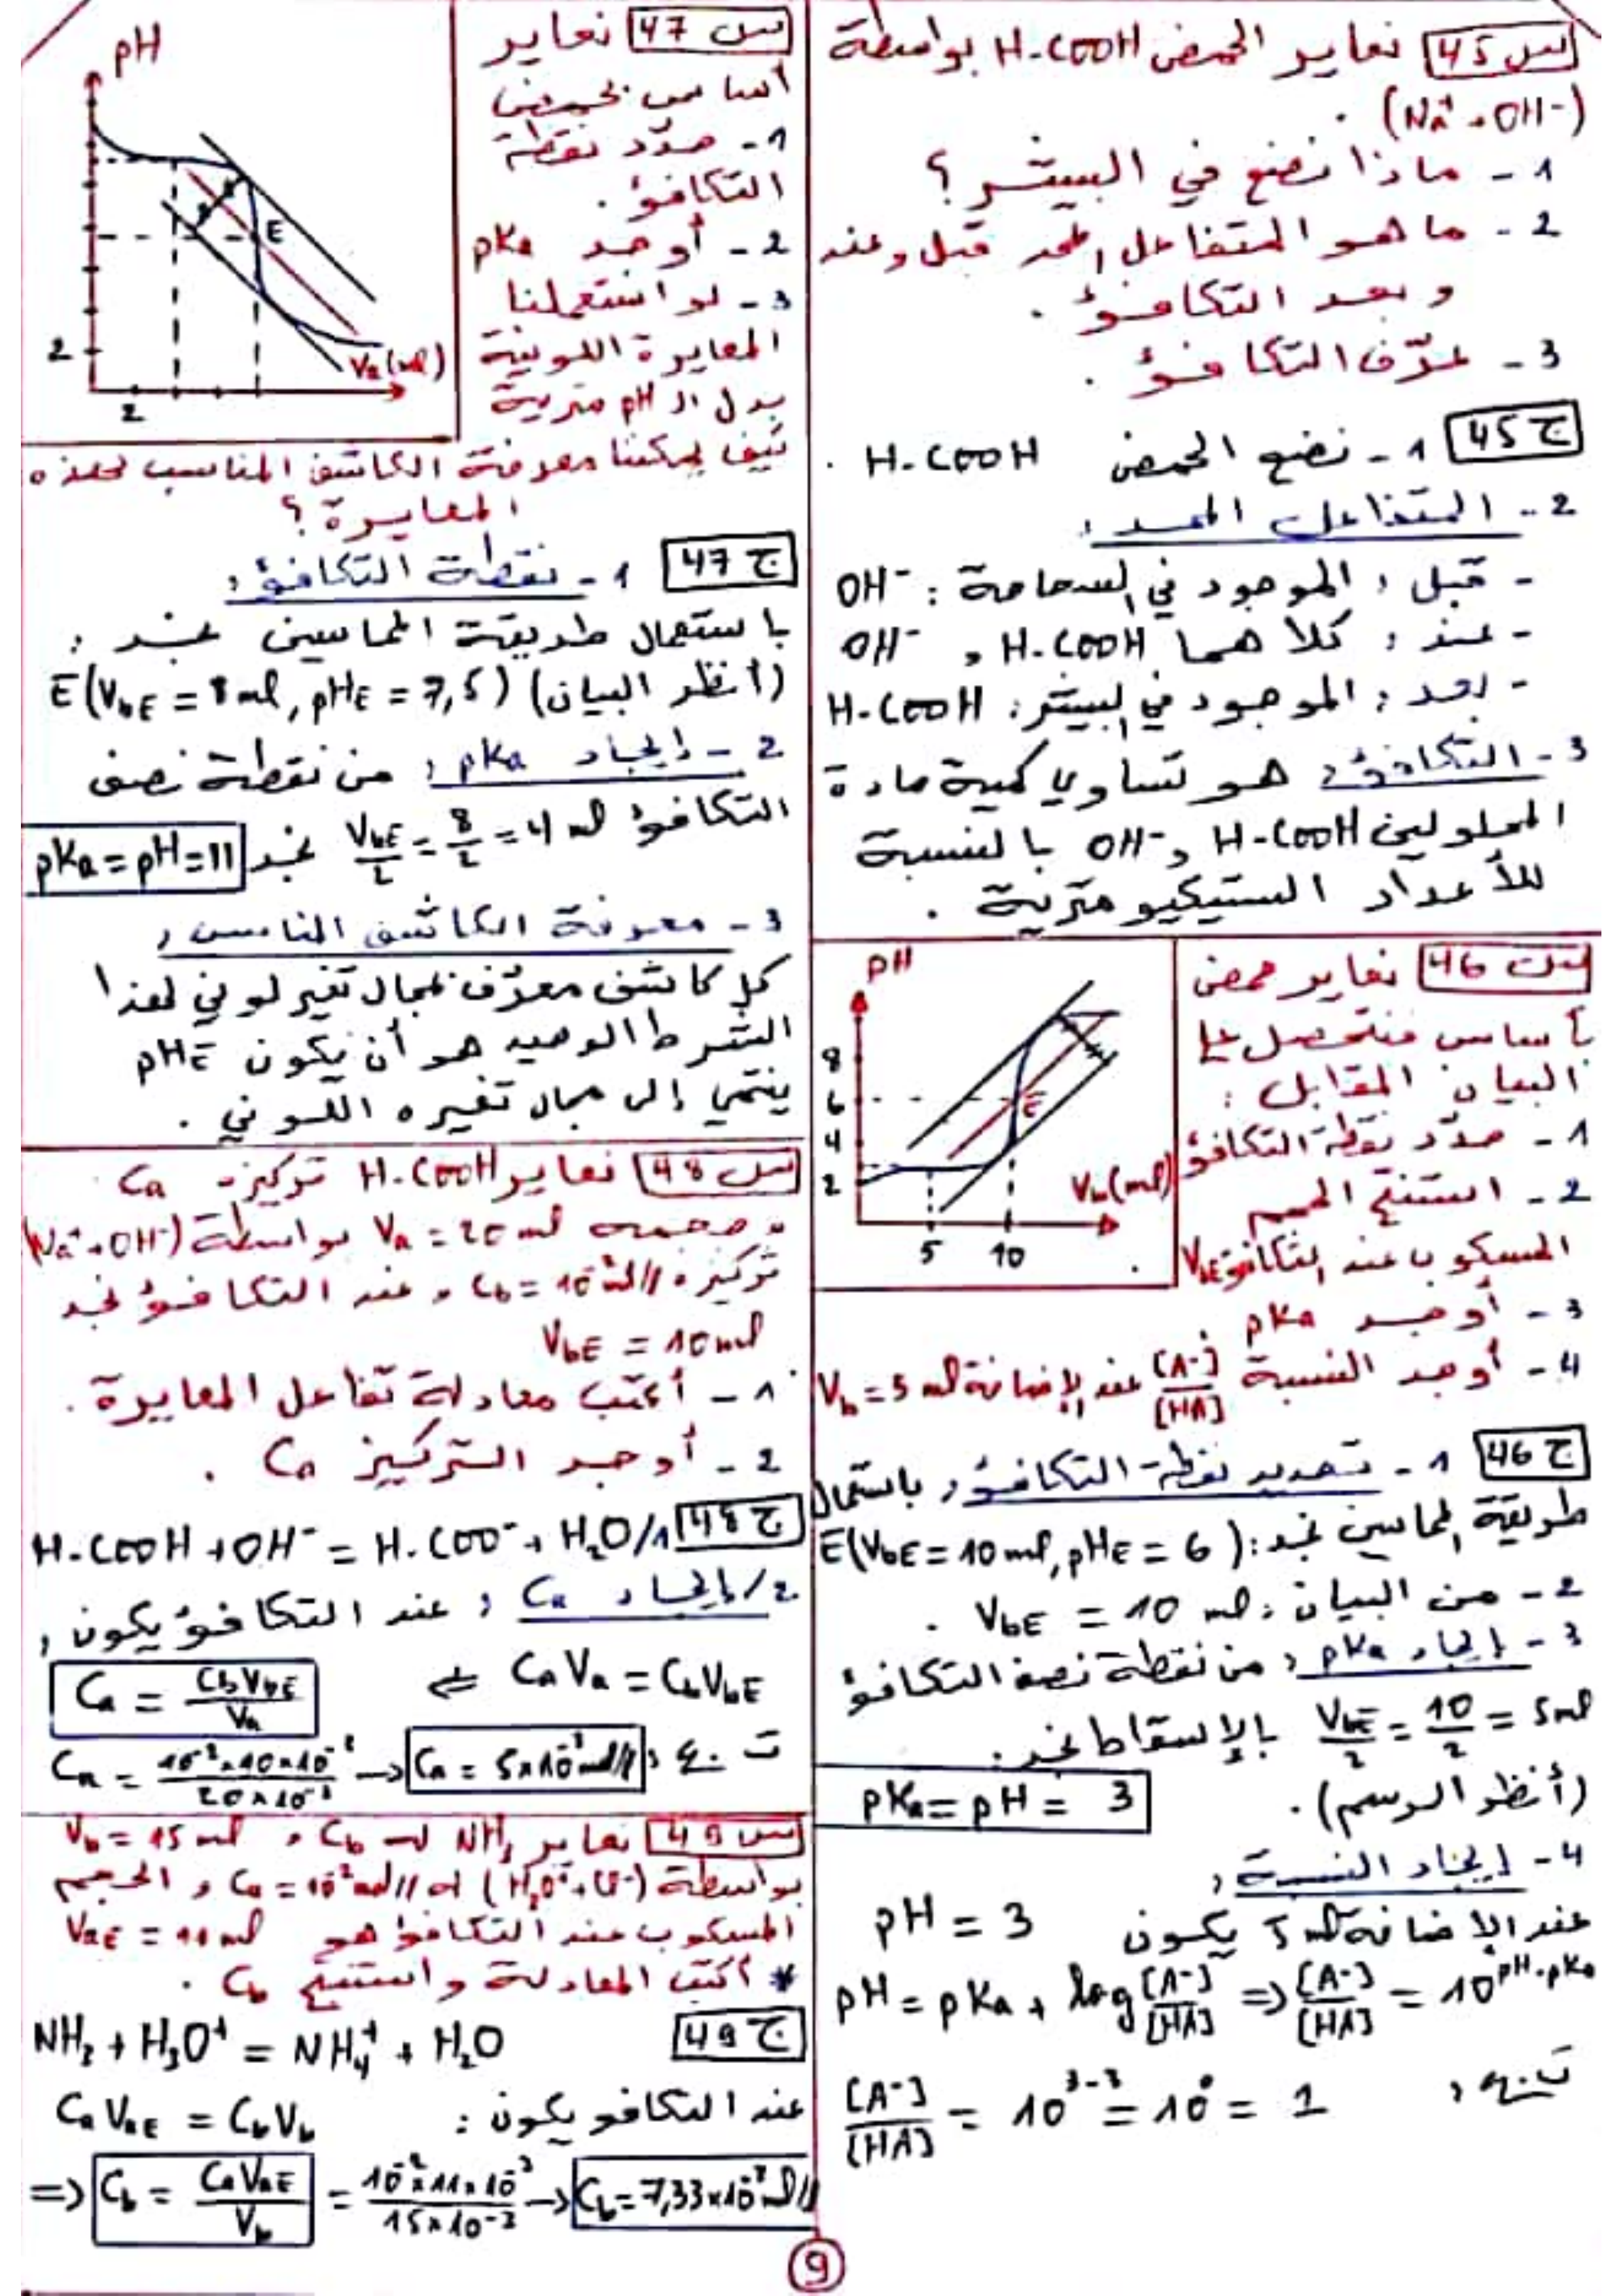 س 45 نعاير الحمض H-COOH بواسطة
(Na⁺ + OH⁻).
1 - ماذا نضع في البيشر؟
2 - ما هو المتفاعل المحد قبل وعند
وبعد التكافؤ.
3 - عرّف التكافؤ.
ج 45 1 - نضع الحمض H-COOH.
2 - المتفاعل المحد:
- قبل: الموجود في السحاحة: OH⁻
- عند: كلاهما H-COOH و OH⁻
- بعد: الموجود في البيشر: H-COOH
3 - التكافؤ: هو تساوي كمية مادة
المحلولين H-COOH و OH⁻ بالنسبة
للأعداد الستيكيومترية.
س 46 نعاير حمض
بأساس فنتحصل على
البيان المقابل:
1 - حدّد نقطة التكافؤ
2 - استنتج الحجم
المسكوب عند التكافؤ VbE
3 - أوجد pKa
4 - أوجد النسبة [A⁻]/[HA] عند الإضافة Vb = 5 ml
pH
8
6
4
2
E
Vb(ml)
5 10
ج 46 1 - تحديد نقطة التكافؤ: باستعمال
طريقة المماسين نجد: E(VbE = 10 ml, pHE = 6)
2 - من البيان: VbE = 10 ml.
3 - إيجاد pKa: من نقطة نصف التكافؤ
VbE/2 = 10/2 = 5 ml بالإسقاط نجد:
pKa = pH = 3 (أنظر الرسم).
4 - إيجاد النسبة:
عند الإضافة 5 ml يكون pH = 3
pH = pKa + log [A⁻]/[HA] ⇒ [A⁻]/[HA] = 10^(pH-pKa)
ت.ع: [A⁻]/[HA] = 10³⁻³ = 10⁰ = 1
س 47 نعاير
أساس بحمض
1 - حدّد نقطة
التكافؤ.
2 - أوجد pKa
3 - لو استعملنا
المعايرة اللونية
بدل الـ pH مترية
كيف يمكننا معرفة الكاشف المناسب لهذه
المعايرة؟
pH
E
2
Va(ml)
2
ج 47 1 - نقطة التكافؤ:
باستعمال طريقة المماسين نجد:
(أنظر البيان) E(VbE = 8 ml, pHE = 7,5)
2 - إيجاد pKa: من نقطة نصف
التكافؤ VbE/2 = 8/2 = 4 ml نجد pKa = pH = 11
3 - معرفة الكاشف المناسب:
كل كاشف معرّف بمجال تغير لوني لهذا
الشرط الوحيد هو أن يكون pHE
ينتمي إلى مجال تغيره اللوني.
س 48 نعاير H-COOH تركيزه Ca
و حجمه Va = 20 ml بواسطة (Na⁺ + OH⁻)
تركيزه Cb = 10⁻² mol/l و عند التكافؤ نجد
VbE = 10 ml
1 - أكتب معادلة تفاعل المعايرة.
2 - أوجد التركيز Ca.
ج 48 1/ H-COOH + OH⁻ = H-COO⁻ + H₂O
2/ إيجاد Ca: عند التكافؤ يكون:
CaVa = CbVbE ⇐ Ca = CbVbE/Va
ت.ع: Ca = 10⁻²×10×10⁻³/20×10⁻³ → Ca = 5×10⁻³ mol/l
س 49 نعاير NH₃ له Cb و Vb = 15 ml
بواسطة (H₃O⁺ + Cl⁻) له Ca = 10⁻² mol/l و الحجم
المسكوب عند التكافؤ هو VaE = 11 ml
* أكتب المعادلة واستنتج Cb.
ج 49 NH₃ + H₃O⁺ = NH₄⁺ + H₂O
عند التكافؤ يكون: CaVaE = CbVb
⇒ Cb = CaVaE/Vb = 10⁻²×11×10⁻³/15×10⁻³ → Cb = 7,33×10⁻³ mol/l
9